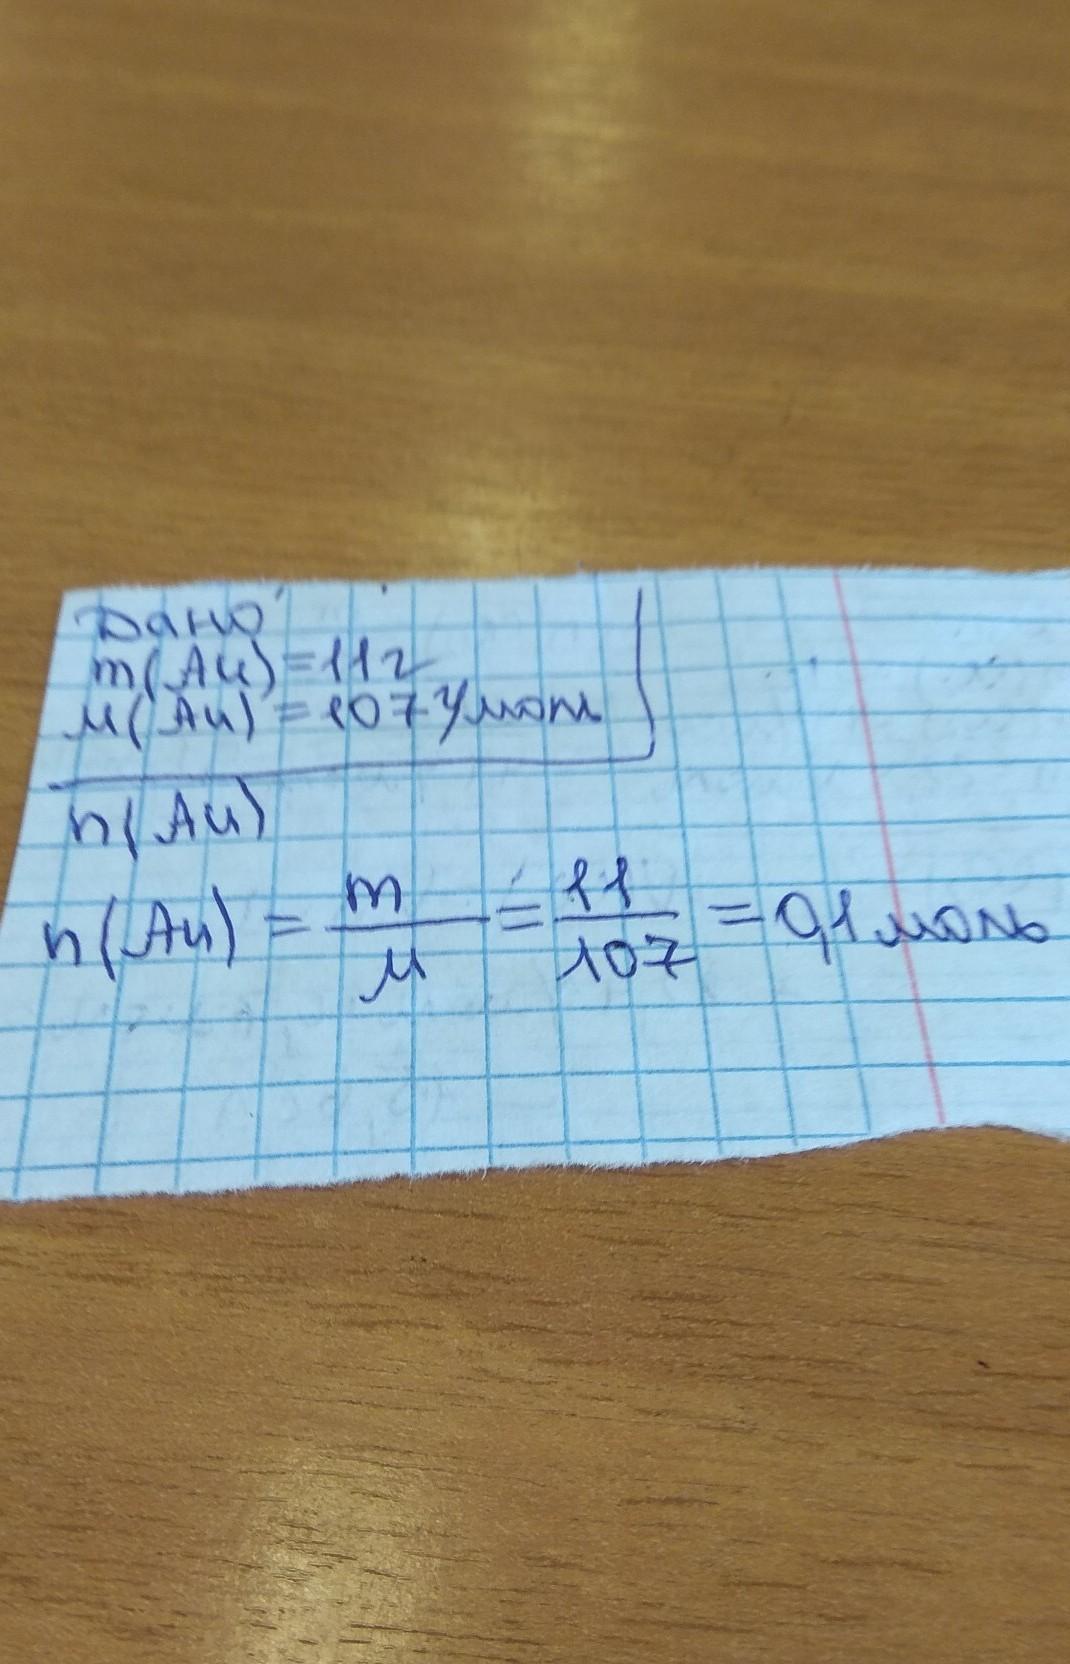 Дано
m(Au)=11г
M(Au)=107г/моль
n(Au)
n(Au) = m/M = 11/107 = 0,1 моль